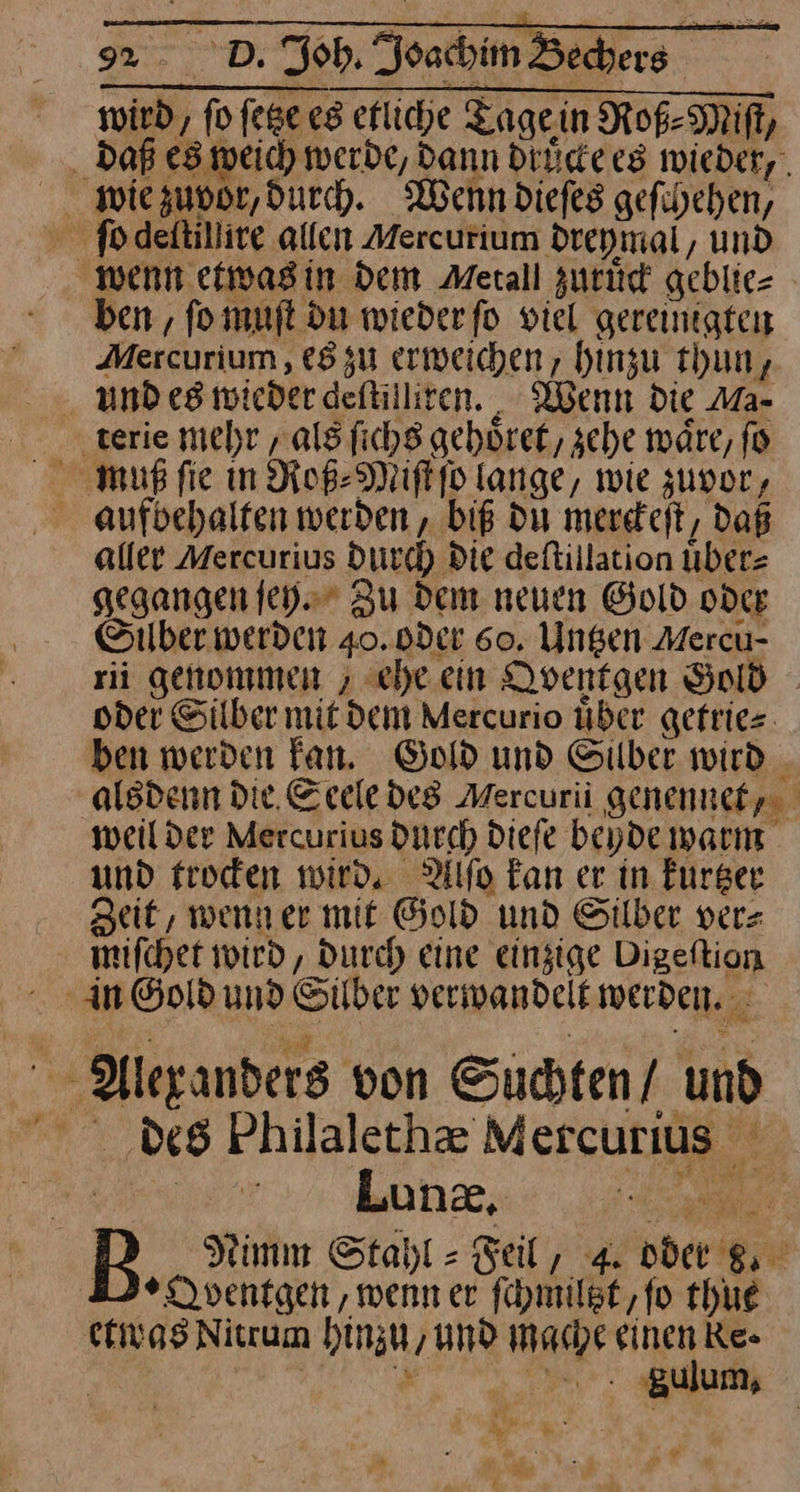 92 D. Joh. Joachim Bechers
wird, ſo ſetze es etliche Tage in Roß-Miſt,
daß es weich werde, dann druͤcke es wieder,
wie zuvor, durch. Wenn dieſes geſchehen,
ſo deſtillire allen Mercurium dreymal, und
wenn etwas in dem Metall zuruͤck geblie-
ben, ſo muſt du wieder ſo viel gereinigten
Mercurium, es zu erweichen, hinzu thun,
und es wieder deſtilliren. Wenn die Ma-
terie mehr, als ſichs gehoͤret, zehe waͤre, ſo
muß ſie in Roß-Miſt ſo lange, wie zuvor,
aufbehalten werden, biß du merckeſt, daß
aller Mercurius durch die deſtillation uͤber-
gegangen ſey. Zu dem neuen Gold oder
Silber werden 40. oder 60. Untzen Mercu-
rii genommen, ehe ein Qventgen Gold
oder Silber mit dem Mercurio uͤber getrie-
ben werden kan. Gold und Silber wird
alsdenn die Seele des Mercurii genennet,
weil der Mercurius durch dieſe beyde warm
und trocken wird. Alſo kan er in kurtzer
Zeit, wenn er mit Gold und Silber ver-
miſchet wird, durch eine einzige Digeſtion
in Gold und Silber verwandelt werden.
Alexanders von Suchten/ und
des Philalethæ Mercurius
Lunæ.
B. Nimm Stahl-Feil, 4. oder 8.
Qventgen, wenn er ſchmiltzt, ſo thue
etwas Nitrum hinzu, und mache einen Re-
gulum,